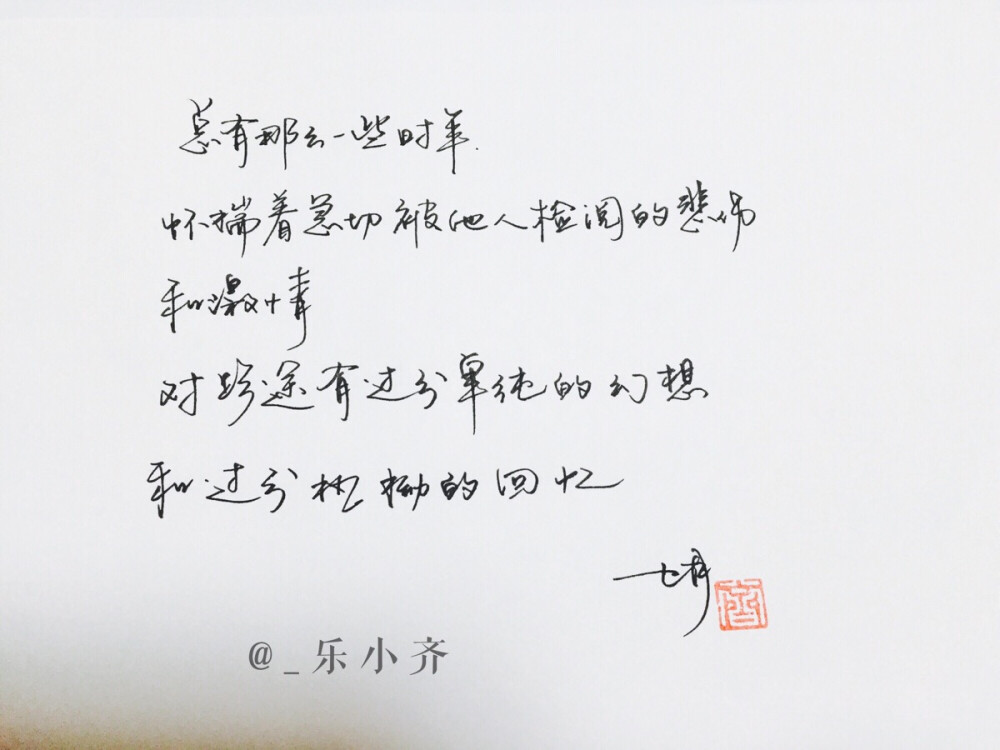 总有那么一些时年
怀揣着急切被他人检阅的悲伤
和激情
对路途有过分单纯的幻想
和过分执拗的回忆
七堇
齊
@_乐小齐